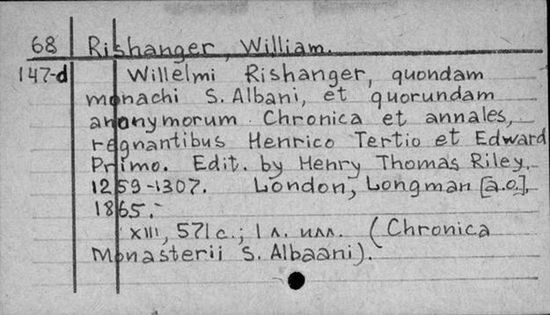 68 Rishanger, William.
147-d Willelmi Rishanger, quondam
monachi S. Albani, et quorundam
anonymorum Chronica et annales,
regnantibus Henrico Tertio et Edward
Primo. Edit. by Henry Thomas Riley,
1259-1307. London, Longman [a.o.],
1865.-
XIII, 571 с.; 1 л. илл. (Chronica
Monasterii S. Albaani).